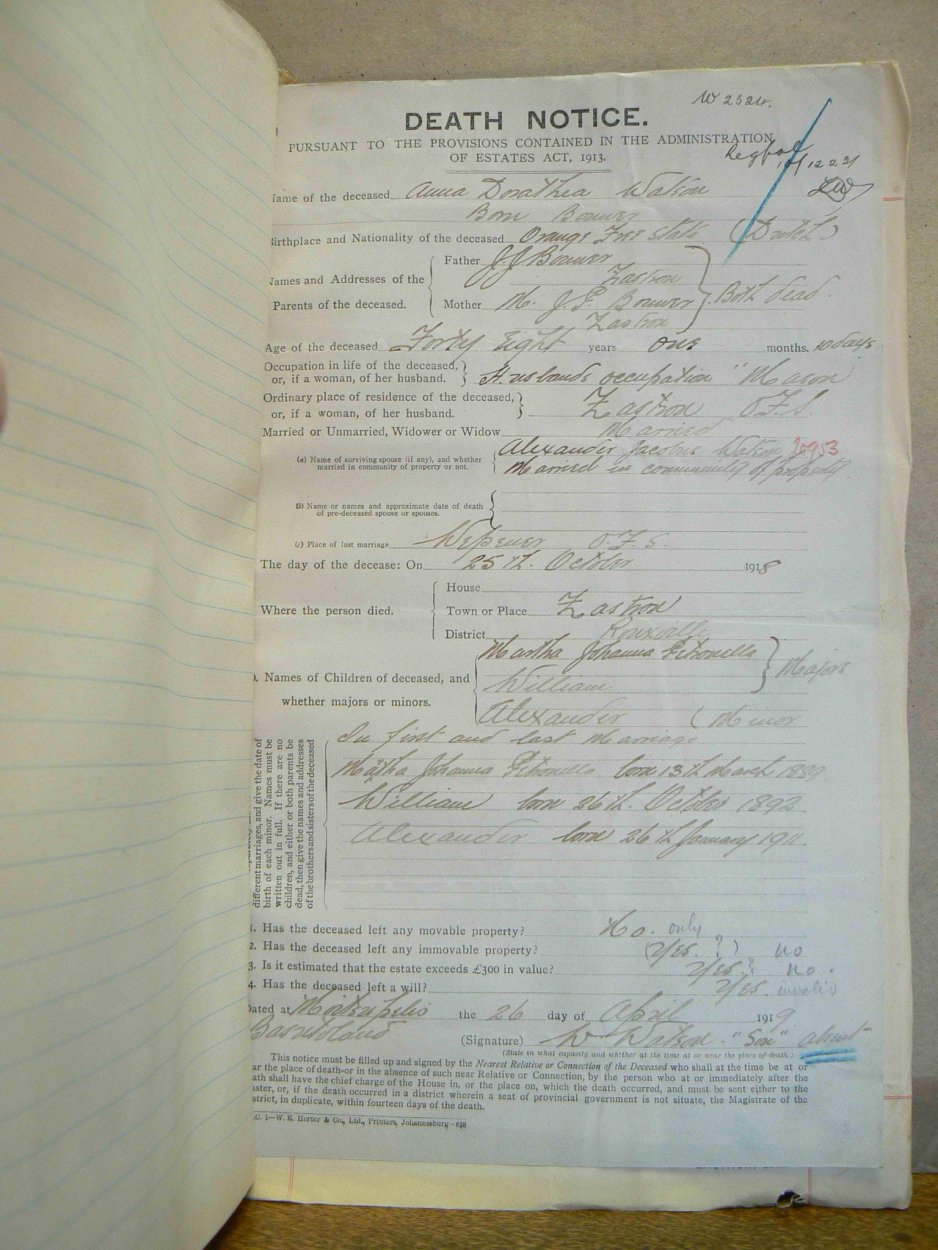 W 2324.
DEATH NOTICE.
PURSUANT TO THE PROVISIONS CONTAINED IN THE ADMINISTRATION
OF ESTATES ACT, 1913.
ame of the deceased Anna Dorathea Watson
Born Bouwer
Birthplace and Nationality of the deceased Orange Free State (Dutch)
Names and Addresses of the Parents of the deceased.
Father J J Bouwer
Zastron
Mother M. J. G. Bouwer
Zastron
Both dead.
Age of the deceased Forty Eight years one months. 10 days
Occupation in life of the deceased,
or, if a woman, of her husband. Husbands occupation "Mason
Ordinary place of residence of the deceased,
or, if a woman, of her husband. Zastron O.F.S
Married or Unmarried, Widower or Widow Married
(a) Name of surviving spouse (if any), and whether
married in community of property or not.
Alexander Jacobus Watson
Married in community of property
(b) Name or names and approximate date of death
of pre-deceased spouse or spouses.
(c) Place of last marriage Wepener O.F.S.
The day of the decease: On 25th. October 1918
Where the person died.
House
Town or Place Zastron
District Rouxville
. Names of Children of deceased, and
whether majors or minors.
Martha Johanna Petronella
William
Majors
Alexander (Minor
different marriages, and give the date of
birth of each minor. Names must be
written out in full. If there are no
children, and either or both parents be
dead, then give the names and addresses
of the brothers and sisters of the deceased
In first and last Marriage
Martha Johanna Petronella born 13th March 1889
William born 26th. October 1892
Alexander born 26th January 1911.
1. Has the deceased left any movable property? No. only
2. Has the deceased left any immovable property? (Yes ?) no
3. Is it estimated that the estate exceeds £300 in value? Yes? no.
4. Has the deceased left a will? Yes. invalid
Dated at the 26 day of April 1919
Basutoland (Signature) W Watson. "Son" absent"
(State in what capacity and whether at the time at or near the place of death.)
This notice must be filled up and signed by the Nearest Relative or Connection of the Deceased who shall at the time be at or
ar the place of death-or in the absence of such near Relative or Connection, by the person who at or immediately after the
ath shall have the chief charge of the House in, or the place on, which the death occurred, and must be sent either to the
ster, or, if the death occurred in a district wherein a seat of provincial government is not situate, the Magistrate of the
strict, in duplicate, within fourteen days of the death.
.C. 1—W. E. Horter & Co., Ltd., Printers, Johannesburg